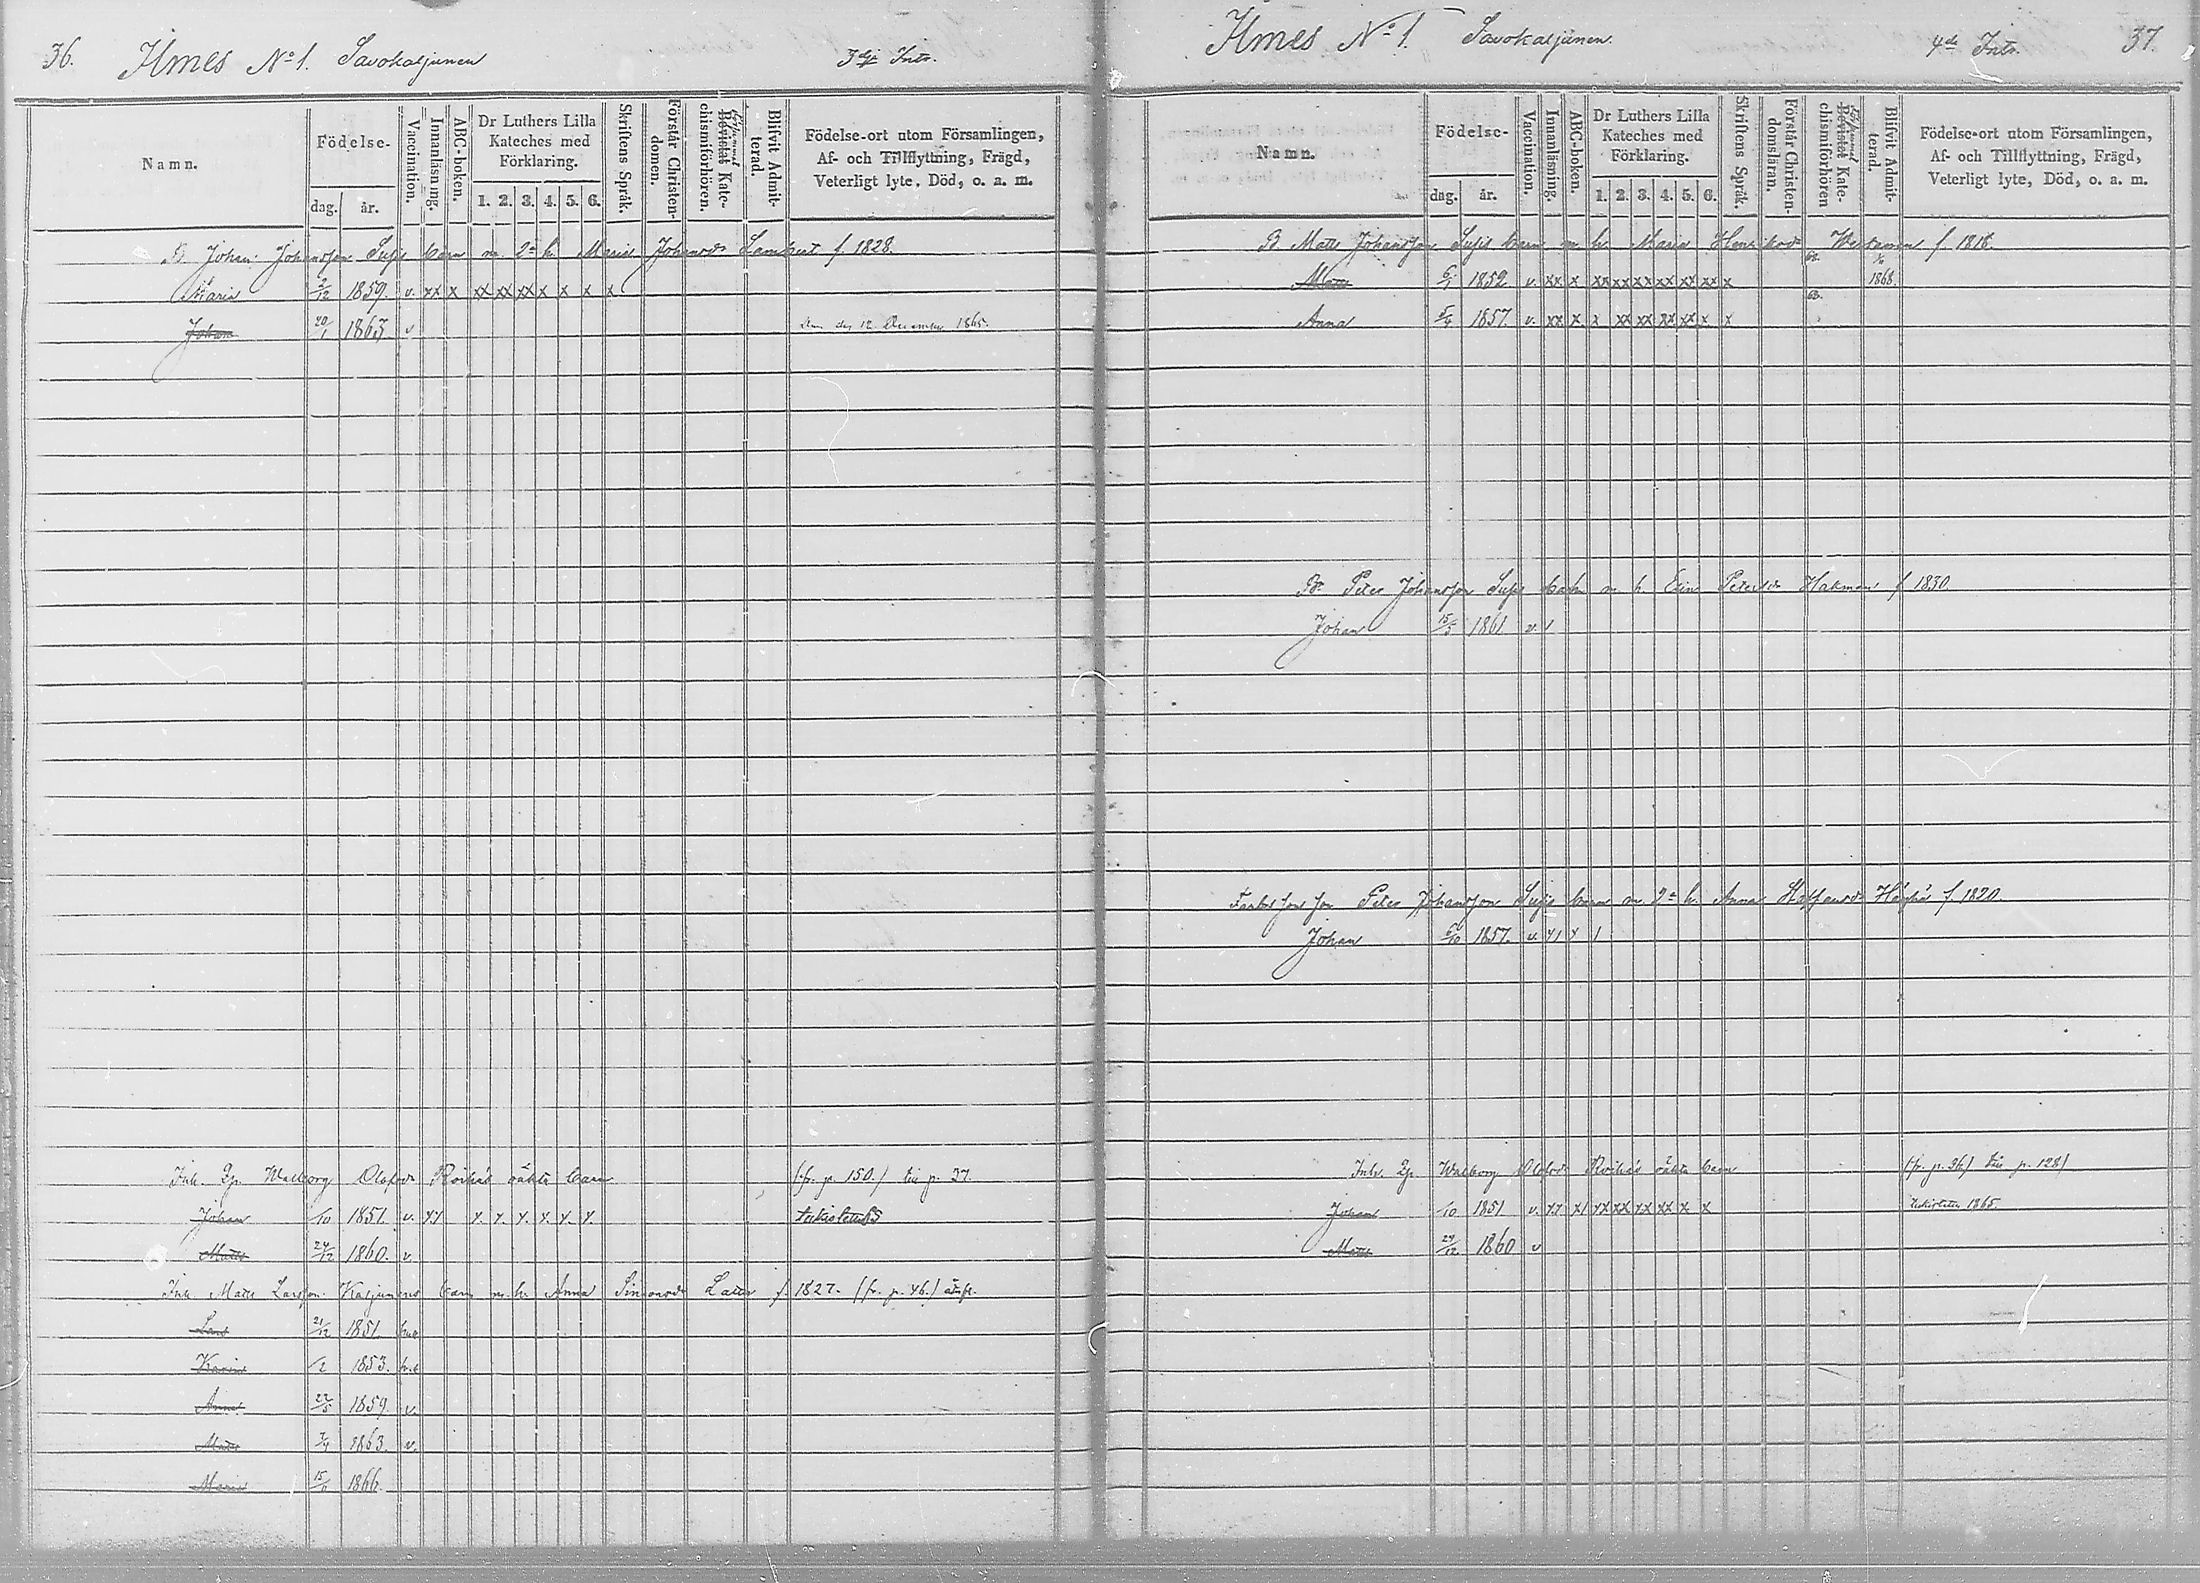 36. Ilmes No 1. Savokaljunen 3dje Intr.
Namn.
Födelse-
dag. år.
Vaccination.
Innanläsning.
ABC-boken.
Dr Luthers Lilla
Kateches med
Förklaring.
1. 2. 3. 4. 5. 6.
Skriftens Språk.
Förstår Christen-
domen.
Bevistat Kate-
chismiförhören.
Blifvit Admit-
terad.
Födelse-ort utom Församlingen,
Af- och Tillflyttning, Frägd,
Veterligt lyte, Död, o. a. m.
B. Johan Johansson barn m. 2a h. Maria Johansdr Lambert f. 1828.
Maria 2/12 1859. v. xx x xx xx xx x x x x
Johan 20/1 1863 v. den 12 December 1865.
Inh. Walborg Olofsdr oäkta barn (fr. p. 150.) till p. 37.
Johan /10 1851. v. xx x. x. x. x. x. x.
Matts 24/12 1860. v.
Inh. Matts Larsson Kaljunens barn m. h. Anna Simonsdr f. 1827. (fr. p. 46.)
Lars 21/12 1851.
Karin /2 1853.
Anna 22/5 1859. v.
Matts 7/4 1863. v.
Maria 15/6 1866.
Ilmes No 1. Savokaljunen. 4de Intr. 37.
Namn.
Födelse-
dag. år.
Vaccination.
Innanläsning.
ABC-boken.
Dr Luthers Lilla
Kateches med
Förklaring.
1. 2. 3. 4. 5. 6.
Skriftens Språk.
Förstår Christen-
domsläran.
Bevistat Kate-
chismiförhören
Blifvit Admit-
terad.
Födelse-ort utom Församlingen,
Af- och Tillflyttning, Frägd,
Veterligt lyte, Död, o. a. m.
B. Matts Johansson barn m. h. Maria Henriksdr f. 1818.
Matts 6/1 1852 v. xx x xx xx xx xx xx xx x 1868.
Anna 5/4 1857. v. xx x x xx xx xx xx x x
Br. Peter Johansson barn m. h. Elin Petersdr Hakman f. 1830.
Johan 15/5 1861 v. 1
Peter Johansson barn m. 2a h. Anna Staffansdr f. 1820.
Johan 6/10 1857. v. x1 x 1
Inh. Walborg Olofsdr oäkta barn (fr. p. 36) till p. 128)
Johan /10 1851 v. xx x1 xx xx xx xx x x 1865.
Matts 24/12 1860 v